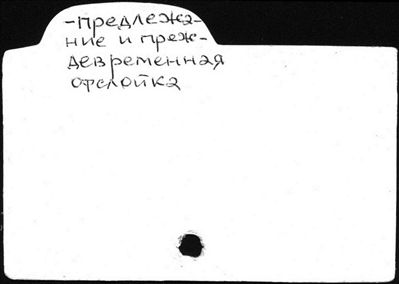 -предлежа-
ние и преж-
девременная
отслойка